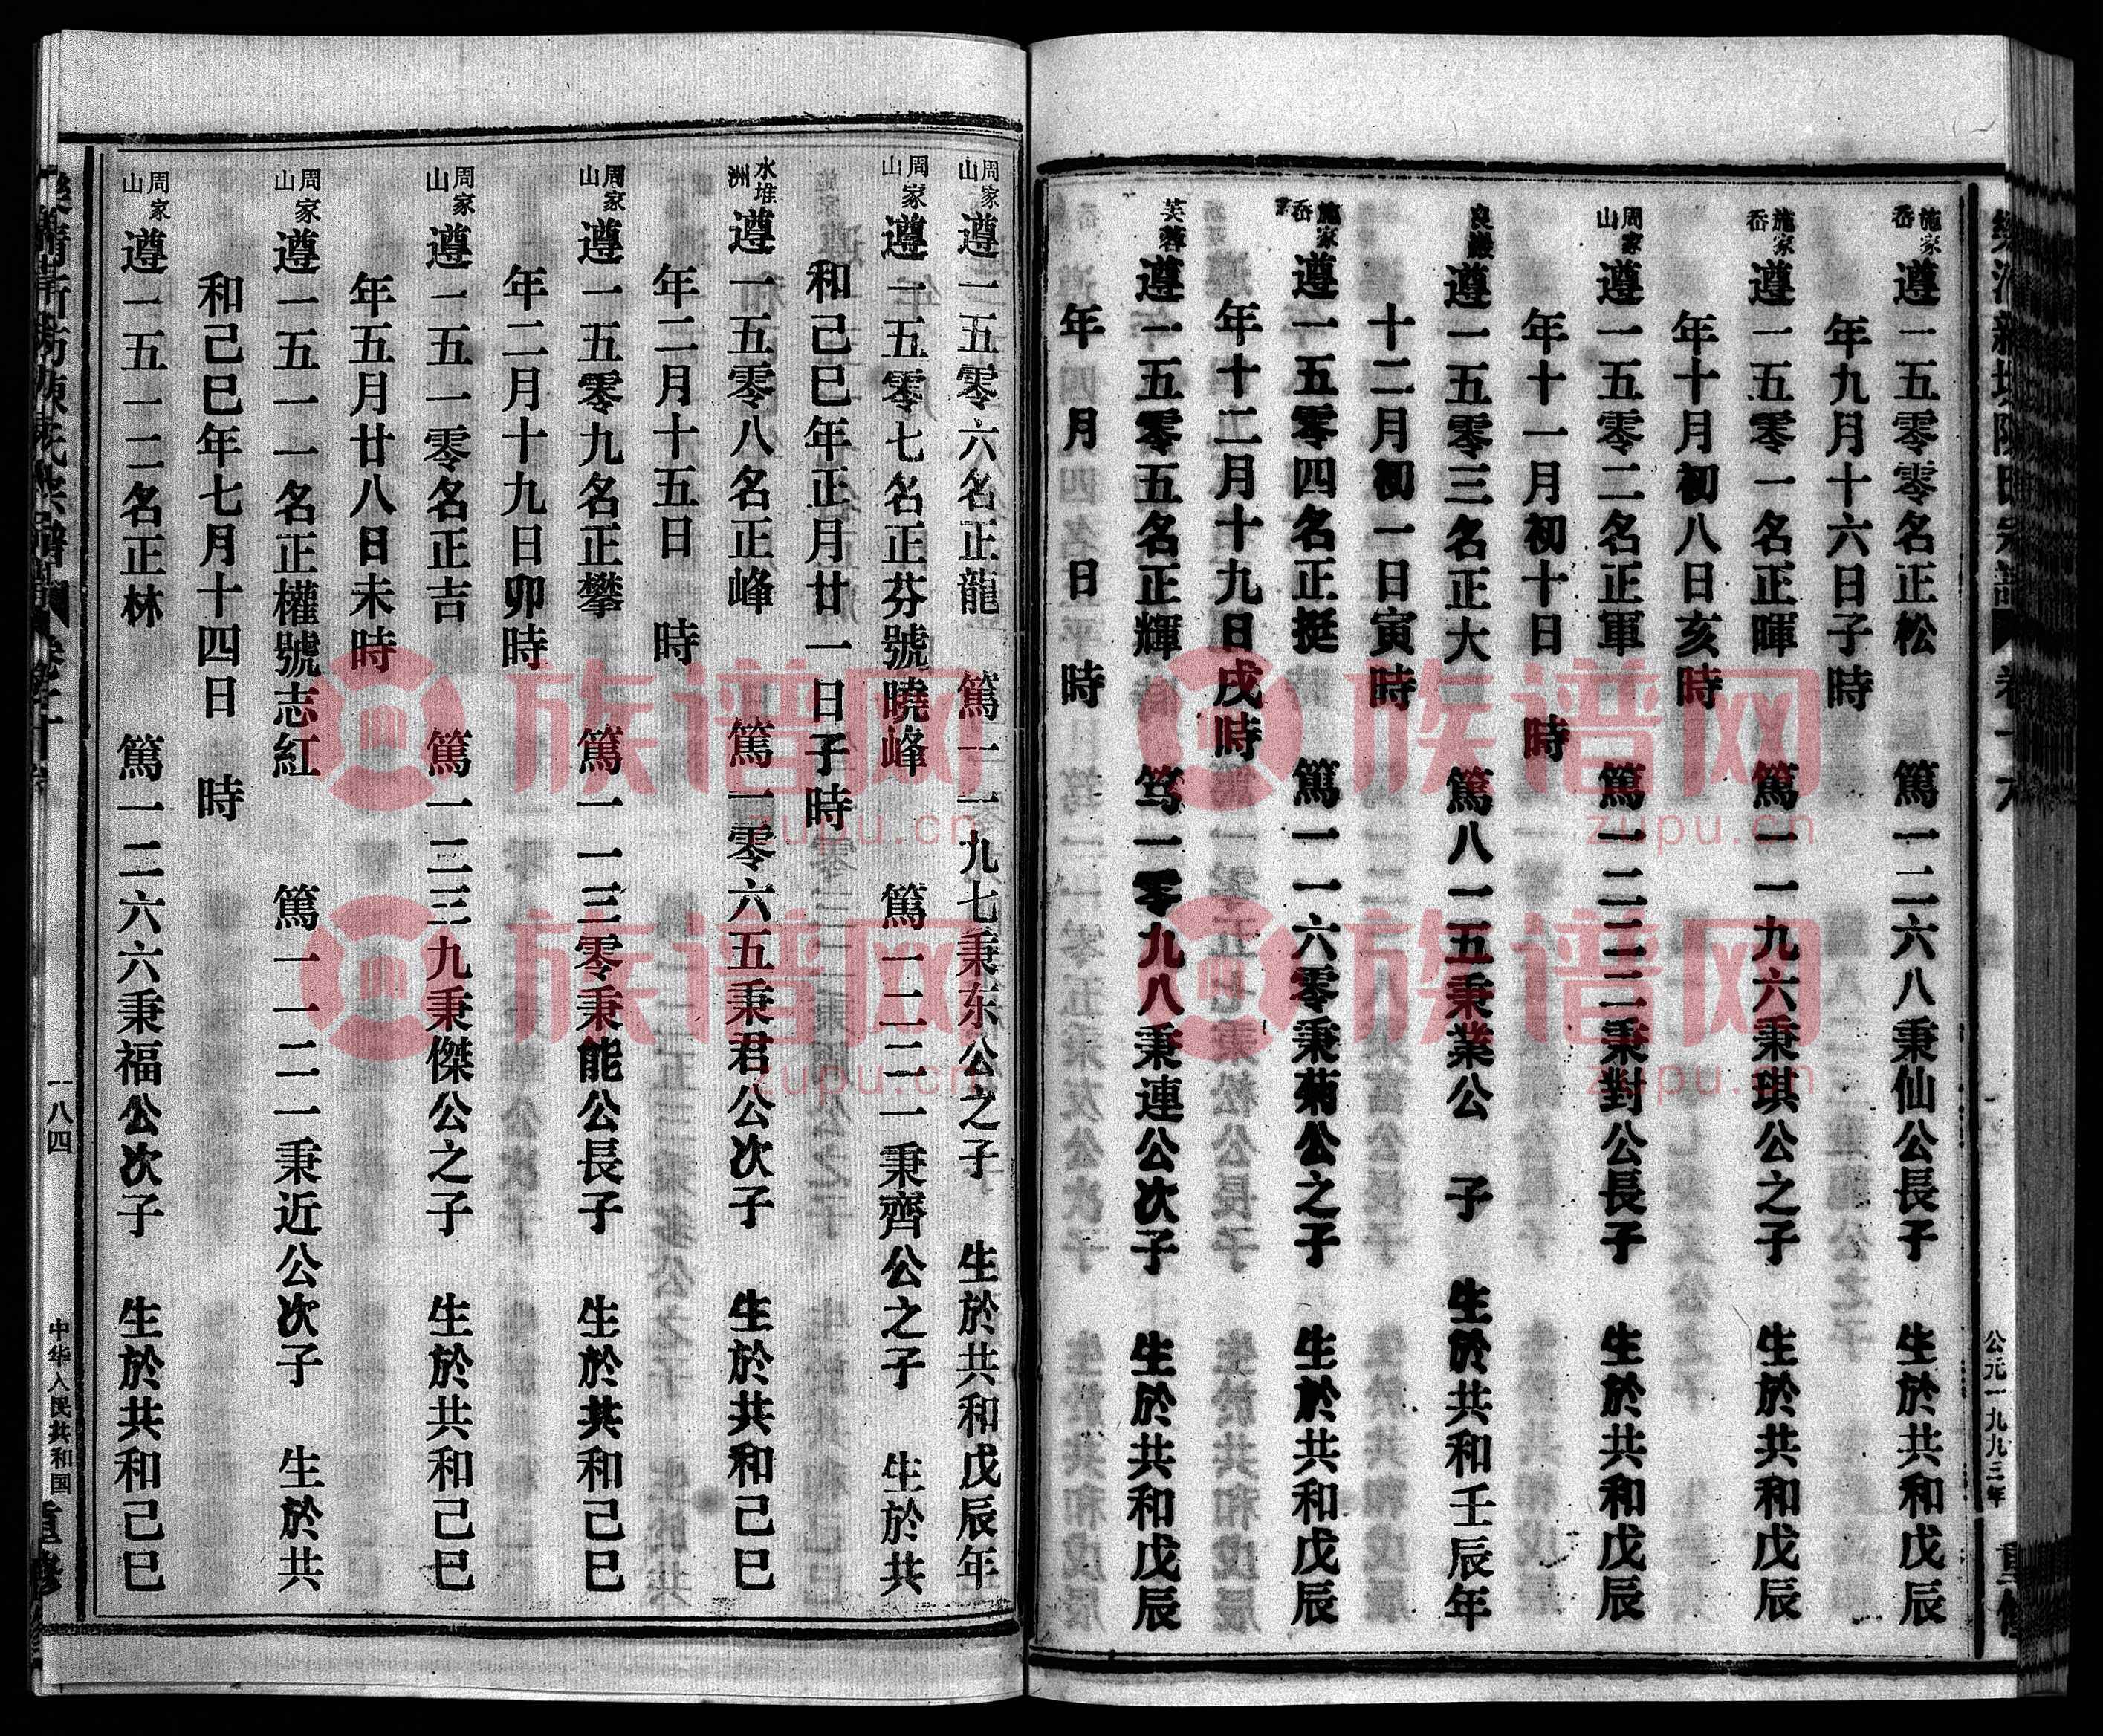 卷十六
公元一九九三年
重修
施家岙 遵一五零零名正松 篤一二六八秉仙公長子 生於共和戊辰
年九月十六日子時
施家岙 遵一五零一名正暉 篤一一九六秉琪公之子 生於共和戊辰
年十月初八日亥時
周家山 遵一五零二名正軍 篤一二三三秉對公長子 生於共和戊辰
年十一月初十日 時
良巖 遵一五零三名正大 篤八一五秉業公 子 生於共和壬辰年
十二月初一日寅時
施家岙 遵一五零四名正挺 篤一一六零秉菊公之子 生於共和戊辰
年十二月十九日戌時
芙蓉 遵一五零五名正輝 篤一零九八秉連公次子 生於共和戊辰
年 月 日 時
周家山 遵一五零六名正龍 篤一一九七秉东公之子 生於共和戊辰年
周家山 遵一五零七名正芬號曉峰 篤一二二一秉齊公之子 生於共
和己巳年正月廿一日子時
水堆洲 遵一五零八名正峰 篤一零六五秉君公次子 生於共和己巳
年二月十五日 時
周家山 遵一五零九名正攀 篤一一三零秉能公長子 生於共和己巳
年二月十九日卯時
周家山 遵一五一零名正吉 篤一二三九秉傑公之子 生於共和己巳
年五月廿八日未時
周家山 遵一五一一名正權號志紅 篤一一二一秉近公次子 生於共
和己巳年七月十四日 時
周家山 遵一五一二名正林 篤一二六六秉福公次子 生於共和己巳
一八四
中华人民共和国
重修
族谱网
zupu.cn
族谱网
zupu.cn
族谱网
zupu.cn
族谱网
zupu.cn